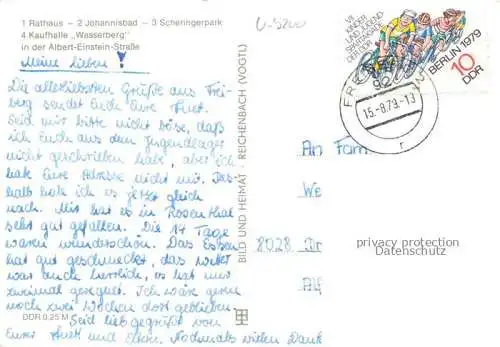 1 Rathaus – 2 Johannisbad – 3 Scheringerpark
4 Kaufhalle „Wasserberg"
in der Albert-Einstein-Straße
Meine Lieben!
Die allerliebsten Grüße aus Frei-
berg sendet Euch Eure
Seid mir bitte nicht böse, daß
ich Euch aus dem Jugendlager
nicht geschrieben habe, aber ich
hatte Eure Adresse nicht mit. Des-
halb hole ich es jetzt gleich
nach. Mir hat es in Rosenthal
sehr gut gefallen. Die 14 Tage
waren wunderschön. Das Essen
hat gut geschmeckt, das Wetter
war auch herrlich, es hat nur
zweimal geregnet. Ich wäre gerne
noch zwei Wochen dort geblieben.
Seid lieb gegrüßt von
Eurer und Eltern. Nochmals vielen Dank
DDR 0,25 M
BILD UND HEIMAT REICHENBACH (VOGTL)
VII.
KINDER
UND JUGEND
SPARTAKIADE
DER DDR
BERLIN 1979
10
DDR
FRE
92
15.-8.79.-13
r
An Fam.
We
8028 Dr
privacy protection
Datenschutz